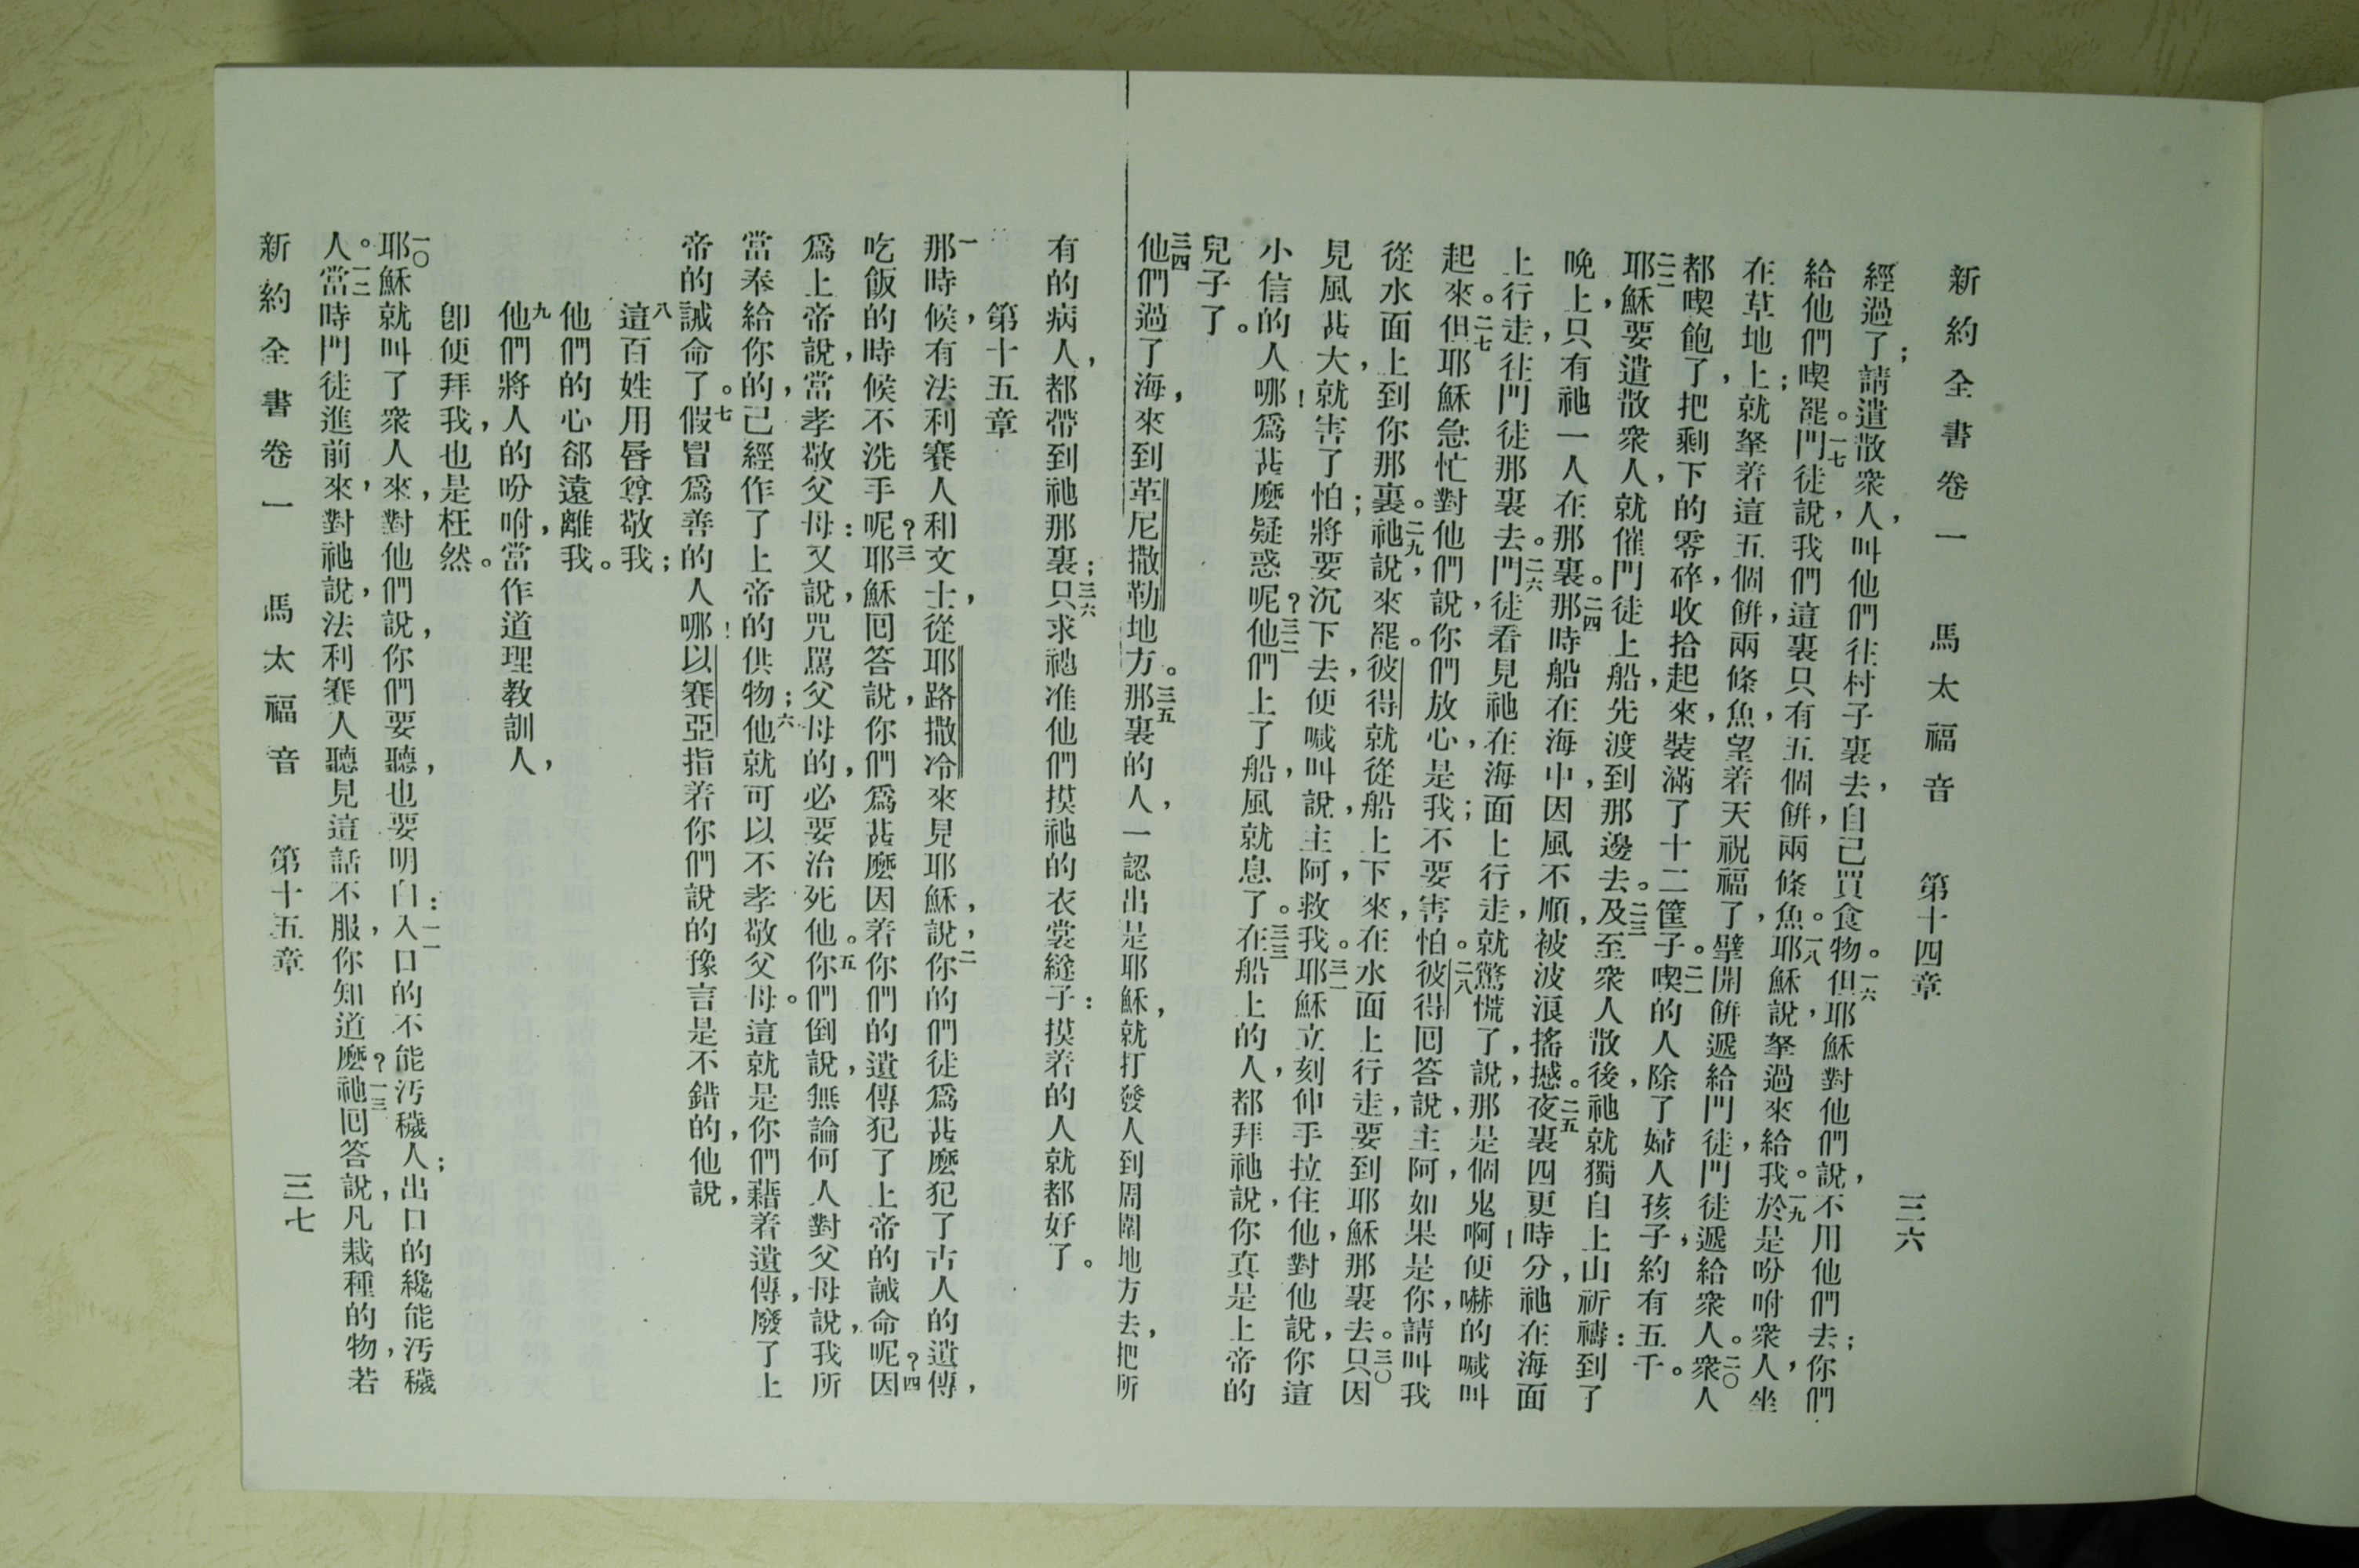 新約全書卷一 馬太福音 第十四章 三六
經過了;請遣散衆人,叫他們往村子裏去,自己買食物。一六但耶穌對他們說,不用他們去;你們
給他們喫罷。一七門徒說,我們這裏只有五個餠,兩條魚。一八耶穌說,拏過來給我。一九於是吩咐衆人,坐
在草地上;就拏着這五個餠,兩條魚,望着天祝福了,擘開餠遞給門徒,門徒遞給衆人。二〇衆人
都喫飽了,把剩下的零碎,收拾起來,裝滿了十二筐子。二一喫的人除了婦人孩子,約有五千。
二二耶穌要遣散衆人,就催門徒上船,先渡到那邊去。二三及至衆人散後,祂就獨自上山祈禱:到了
晚上,只有祂一人在那裏。二四那時船在海中,因風不順,被波浪搖撼。二五夜裏四更時分,祂在海面
上行走,往門徒那裏去。二六門徒看見祂在海面上行走,就驚慌了,說,那是個鬼啊!便嚇的喊叫
起來。二七但耶穌急忙對他們說,你們放心,是我;不要害怕。二八彼得囘答說,主阿,如果是你,請叫我
從水面上到你那裏。二九祂說,來罷。彼得就從船上下來,在水面上行走,要到耶穌那裏去。三〇只因
見風甚大,就害了怕;將要沉下去,便喊叫說,主阿,救我。三一耶穌立刻伸手拉住他,對他說,你這
小信的人哪!爲甚麽疑惑呢?三二他們上了船,風就息了。三三在船上的人,都拜祂說,你真是上帝的
兒子了。
三四他們過了海,來到革尼撒勒地方。三五那裏的人,一認出是耶穌,就打發人到周圍地方去,把所
有的病人,都帶到祂那裏;三六只求祂准他們摸祂的衣裳繸子:摸着的人就都好了。
第十五章
一那時候,有法利賽人和文士,從耶路撒冷來見耶穌,說,二你的們徒爲甚麽犯了古人的遺傳,
吃飯的時候不洗手呢?三耶穌囘答說,你們爲甚麽因着你們的遺傳犯了上帝的誡命呢?四因
爲上帝說,當孝敬父母:又說,咒罵父母的,必要治死他。五你們倒說,無論何人對父母說,我所
當奉給你的,已經作了上帝的供物;六他就可以不孝敬父母。這就是你們,藉着遺傳,廢了上
帝的誡命了。七假冒爲善的人哪!以賽亞指着你們說的豫言是不錯的,他說,
八這百姓用唇尊敬我;
他們的心郤遠離我。
九他們將人的吩咐,當作道理教訓人,
卽便拜我,也是枉然。
一〇耶穌就叫了衆人來,對他們說,你們要聽,也要明白:一一入口的不能汚穢人;出口的纔能汚穢
人。一二當時門徒進前來,對祂說,法利賽人聽見這話不服,你知道麽?一三祂囘答說,凡栽種的物,若
新約全書卷一 馬太福音 第十五章 三七